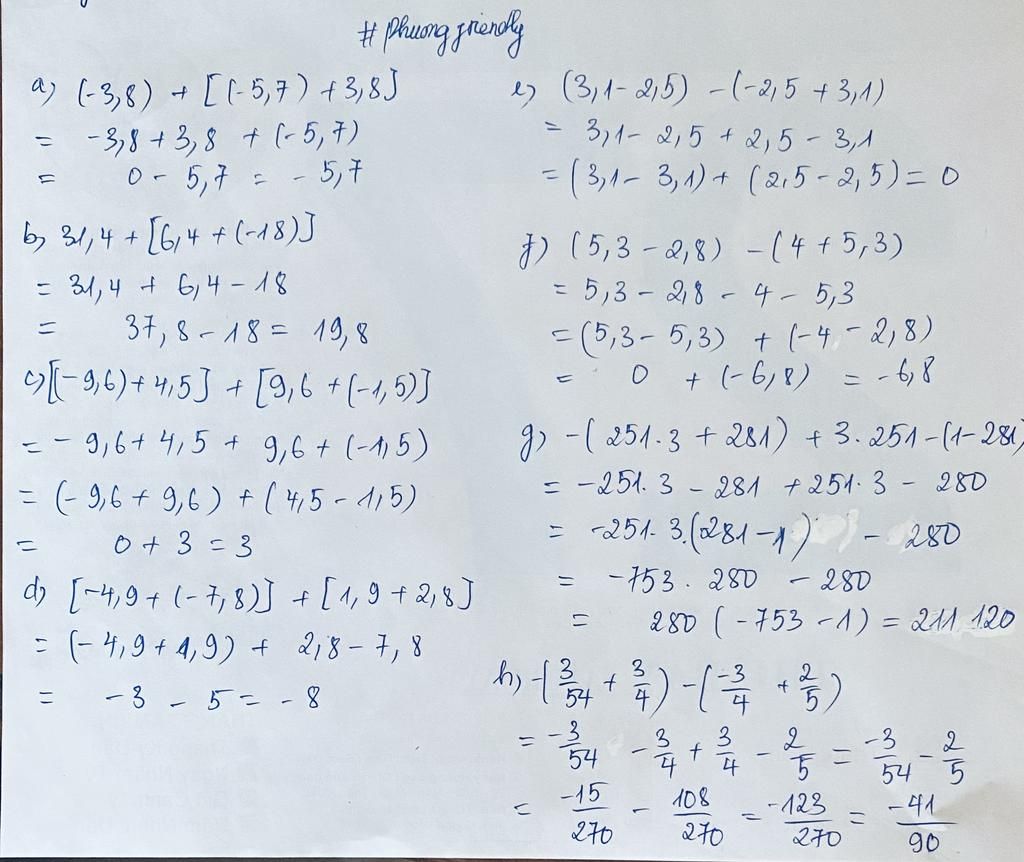 # phuong friendly
a) (-3,8) + [(-5,7) + 3,8]
= -3,8 + 3,8 + (-5,7)
= 0 - 5,7 = - 5,7
b) 31,4 + [6,4 + (-18)]
= 31,4 + 6,4 - 18
= 37,8 - 18 = 19,8
c) [(-9,6) + 4,5] + [9,6 + (-1,5)]
= - 9,6 + 4,5 + 9,6 + (-1,5)
= (-9,6 + 9,6) + (4,5 - 1,5)
= 0 + 3 = 3
d) [-4,9 + (-7,8)] + [1,9 + 2,8]
= (-4,9 + 1,9) + 2,8 - 7,8
= -3 - 5 = - 8
e) (3,1 - 2,5) - (-2,5 + 3,1)
= 3,1 - 2,5 + 2,5 - 3,1
= (3,1 - 3,1) + (2,5 - 2,5) = 0
f) (5,3 - 2,8) - (4 + 5,3)
= 5,3 - 2,8 - 4 - 5,3
= (5,3 - 5,3) + (-4 - 2,8)
= 0 + (-6,8) = -6,8
g) -(251.3 + 281) + 3.251 - (1 - 281)
= -251.3 - 281 + 251.3 - 280
= -251.3.(281-1) - 280
= -753 . 280 - 280
= 280 (-753 - 1) = 211 120
h) -(3/54 + 3/4) - (-3/4 + 2/5)
= -3/54 - 3/4 + 3/4 - 2/5 = -3/54 - 2/5
= -15/270 - 108/270 = -123/270 = -41/90